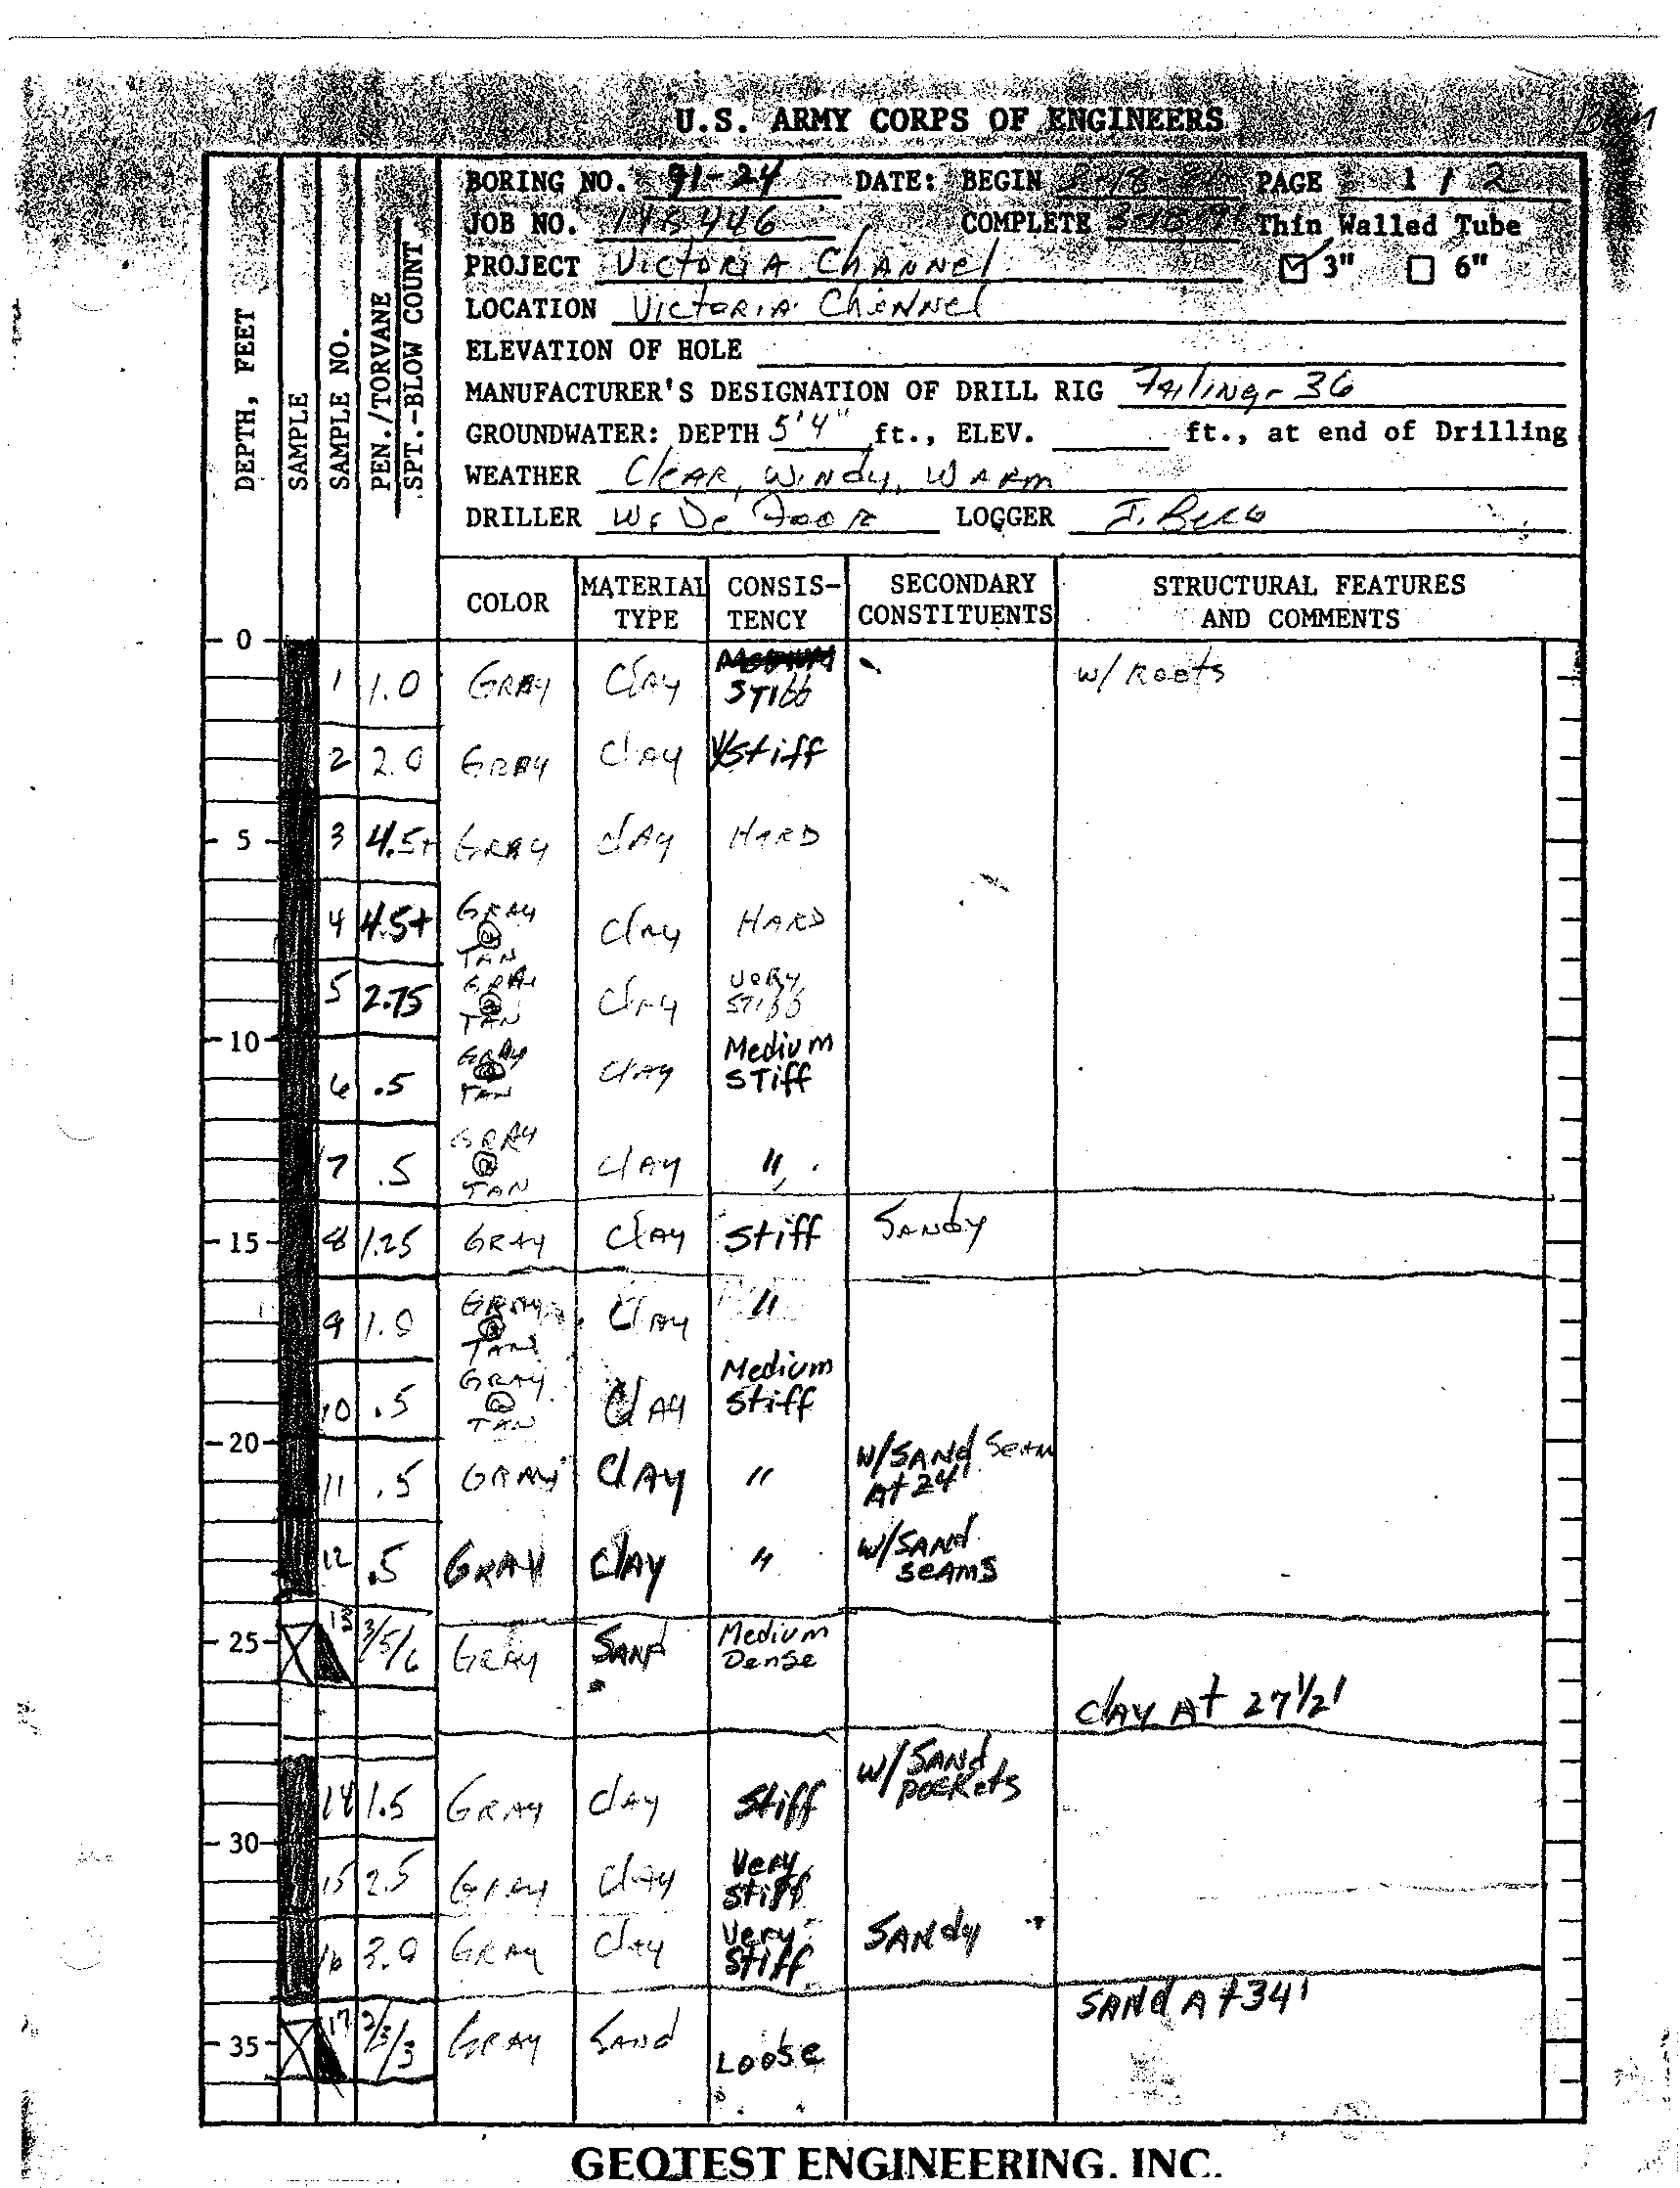 U.S. ARMY CORPS OF ENGINEERS
BORING NO. 91-24 DATE: BEGIN PAGE 1 / 2
JOB NO. COMPLETE Thin Walled Tube
PROJECT VICTORIA ChANNel ☑ 3" ☐ 6"
LOCATION VICTORIA ChaNNel
ELEVATION OF HOLE
MANUFACTURER'S DESIGNATION OF DRILL RIG Failing - 36
GROUNDWATER: DEPTH 5'4" ft., ELEV. ft., at end of Drilling
WEATHER CleAR, WiNdy, WARM
DRILLER LOGGER
DEPTH, FEET
SAMPLE
SAMPLE NO.
PEN./TORVANE
SPT.-BLOW COUNT
COLOR MATERIAL TYPE CONSIS-TENCY SECONDARY CONSTITUENTS STRUCTURAL FEATURES AND COMMENTS
0
1 1.0 GRAY ClAY STIff w/ Roots
2 2.0 GRAY ClAY V Stiff
5 3 4.5+ GRAY ClAY HARD
4 4.5+ GRAY @ TAN ClAY HARD
5 2.75 GRAY @ TAN ClAY VERY STIff
10
6 .5 GRAY @ TAN ClAY Medium STiff
7 .5 GRAY @ TAN ClAY "
15 8 1.25 GRAY ClAY Stiff SANDY
9 1.0 GRAY @ TAN ClAY "
10 .5 GRAY @ TAN ClAY Medium Stiff
20
11 .5 GRAY ClAY " W/SANd SeAM At 24'
12 .5 GRAY ClAY " w/SANd SeAMS
25 13 3/5/6 GRAY SANd Medium Dense
ClAY At 27 1/2'
14 1.5 GRAY ClAY Stiff w/ SANd pockets
30
15 2.5 GRAY ClAY Very Stiff
16 3.0 GRAY ClAY Very Stiff SANdy
SANd At 34'
35 17 2/3/3 GRAY SANd Loose
GEOTEST ENGINEERING, INC.